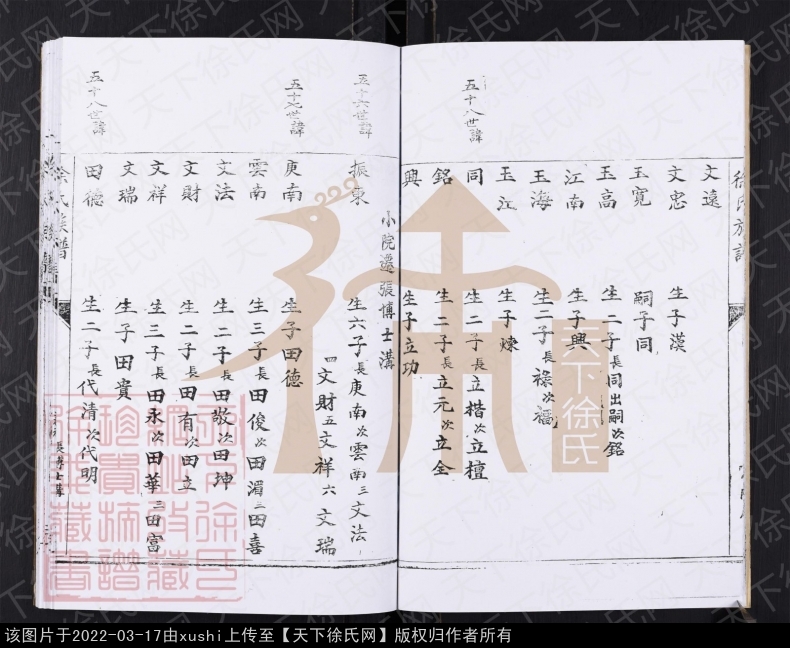 徐氏族譜
文遠
文忠 生子漢
玉寬 嗣子同
玉高 生二子長同出嗣次銘
江南 生子興
玉海 生二子長祿次福
玉江 生子煉
五十八世諱
同 生二子長立楷次立檀
銘 生二子長立元次立全
興 生子立功
小院遷張博士溝
五十六世諱
振東 生六子長庚南次雲南三文法
四文財五文祥六文瑞
五十七世諱
庚南 生子田德
雲南 生三子長田俊次田湄三田喜
文法 生二子長田敬次田坤
文財 生二子長田有次田立
文祥 生三子長田永次田華三田富
文瑞 生子田貴
五十八世諱
田德 生二子長代清次代明
徐氏族譜
張博士溝
天下徐氏
天下徐氏网
该图片于2022-03-17由xushi上传至【天下徐氏网】版权归作者所有